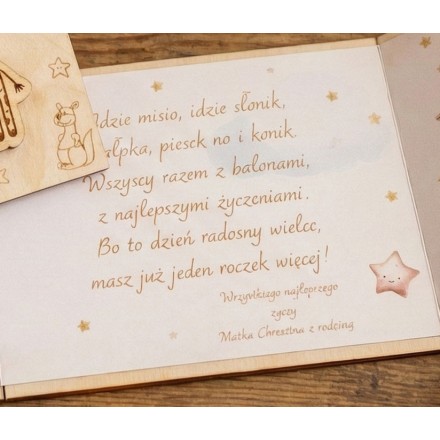 Idzie misio, idzie słonik,
ałpka, piesck no i konik.
Wszyscy razem z balonami,
z najlepszymi życzeniami.
Bo to dzień radosny wielcc,
masz już jeden roczek więcej!
Wrzystkiego najłoprzego
zyczy
Matka Chresztna z rodziną